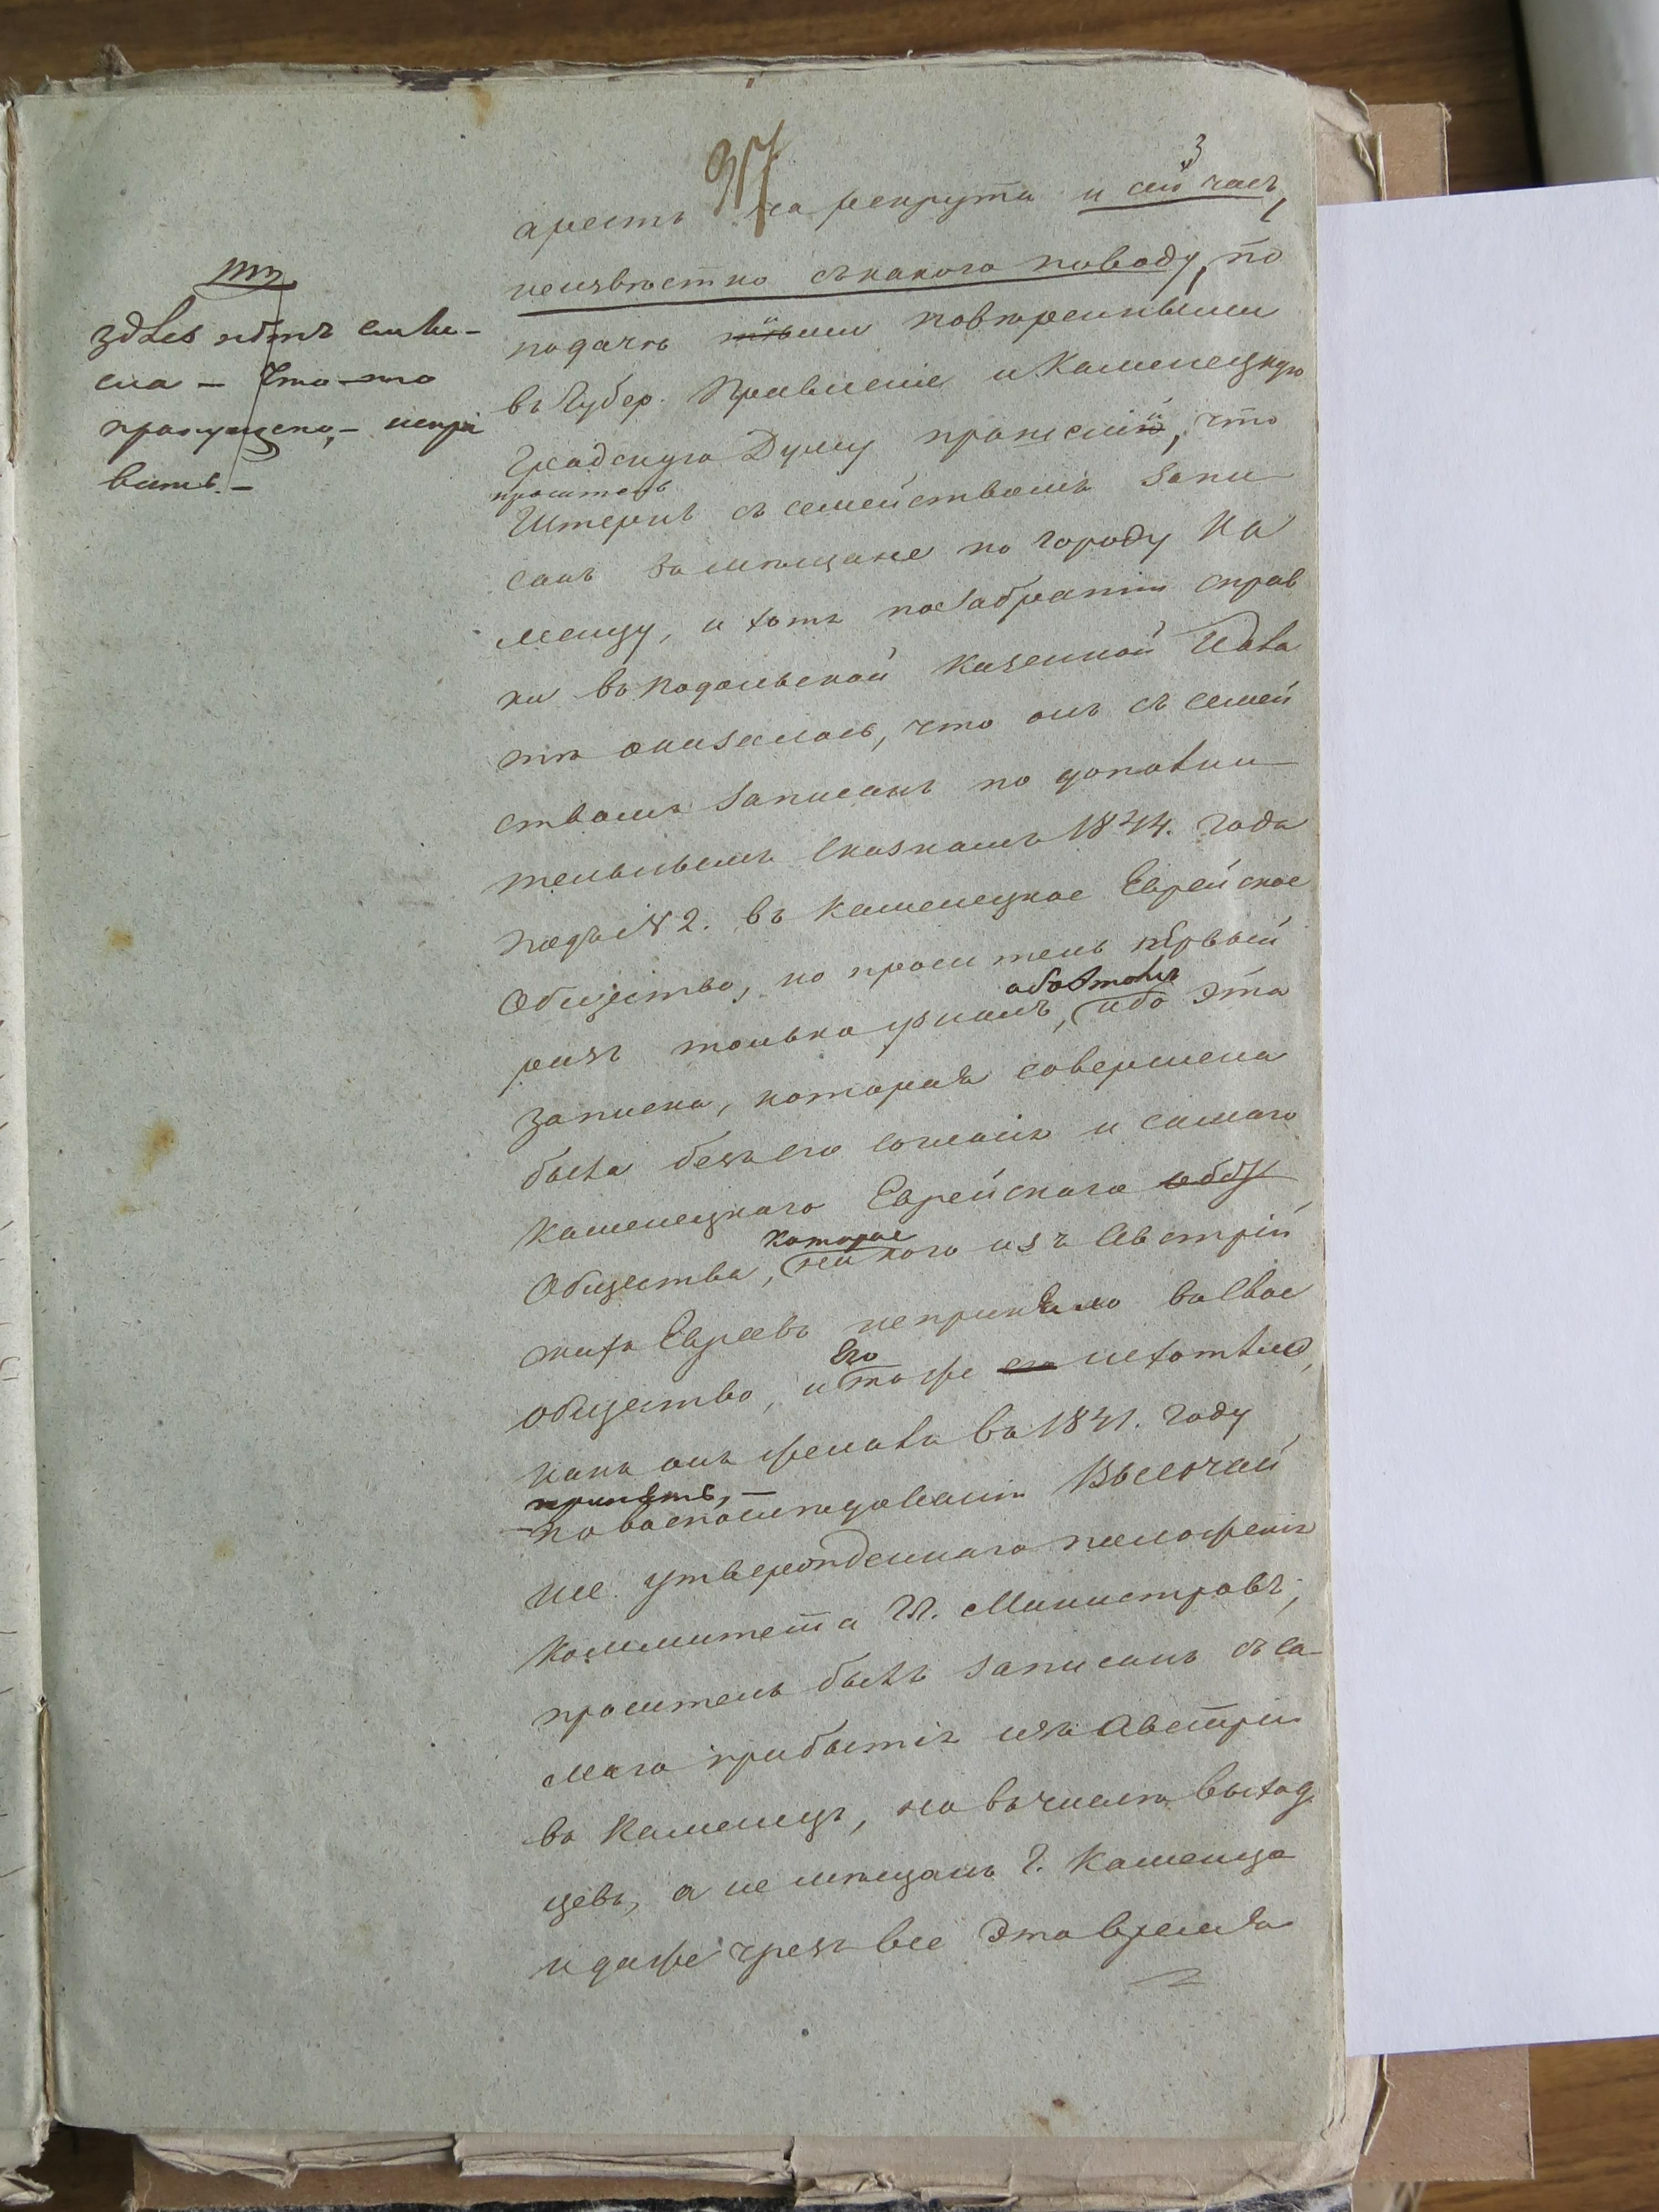 37
3
арестъ на рекрута и сей часъ,
неизвѣстно съ какого поводу, по
подачѣ ими повѣренными
въ Губер. Правленіе и Каменецкую
Градскую Думу прошеній, что
проситель
Штернъ съ семействомъ запи
санъ въ мѣщане по городу Ка
менцу, и хотя по забратіи справ
ки въ Подольской Казенной Пала
тѣ оказалось, что онъ съ семей
ствомъ записанъ по дополни
тельнымъ сказкамъ 1844. года
подъ № 2. въ Каменецкое Еврейское
Общество, но проситель первый
объ этомъ
разъ только узналъ, ибо эта
записка, которая совершена
была безъ его согласія и самаго
Каменецкаго Еврейскаго
которое
Общества, никого изъ Австрій
скихъ Евреевъ непринимало въ свое
его
общество, и тоже нехотѣло,
какъ онъ желалъ въ 1841. году
принять, –
По воспослѣдованіи Высочай
ше утвержденнаго положенія
Коммитета Гг. Министровъ,
проситель былъ записанъ съ са-
маго прибытія изъ Австріи
въ Каменецъ, но въ число выход
цевъ, а не мѣщанъ г. Каменца
и даже чрезъ все это время
здесь нѣтъ смы-
сла – Что-то
пропущено, – испра
вить. –